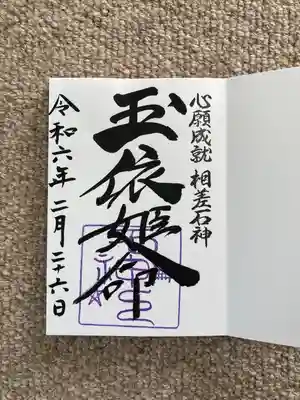 心願成就 相差石神
玉依姫命
令和六年 二月二十六日